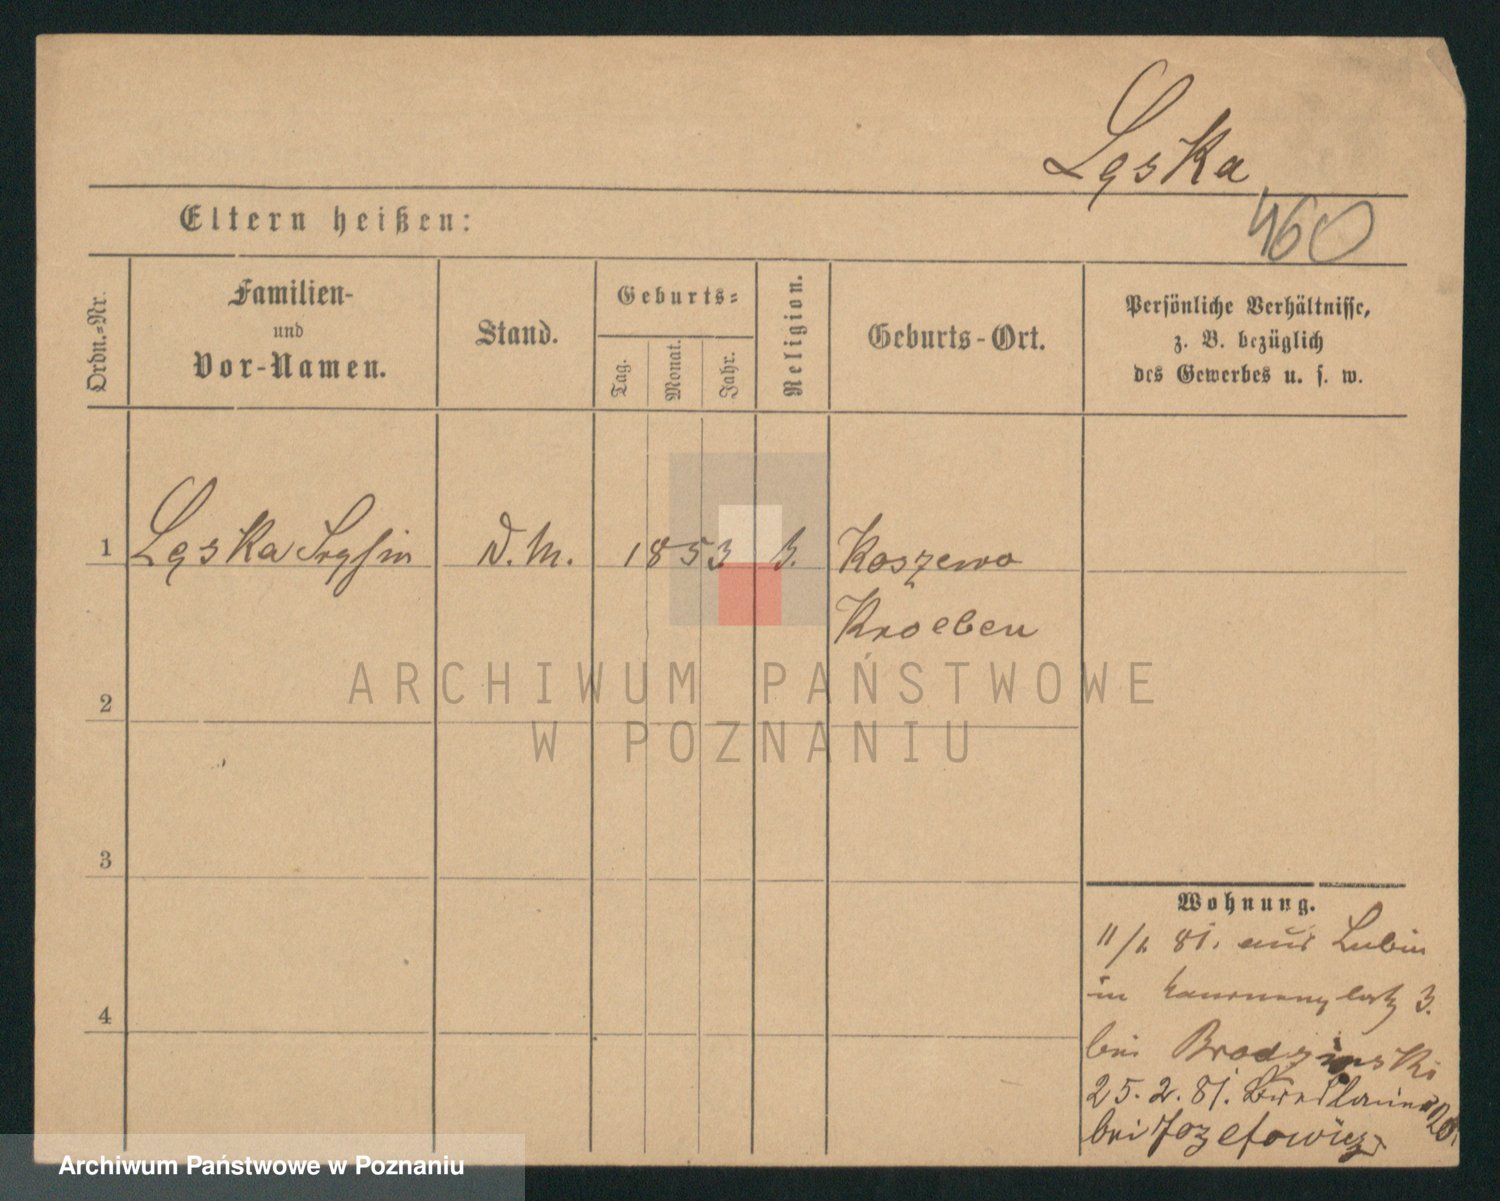 Lęska
460
Eltern heißen:
Ordn.-Nr.
Familien-
und
Vor-Namen.
Stand.
Geburts-
Tag.
Monat.
Jahr.
Religion.
Geburts-Ort.
Persönliche Verhältnisse,
z. B. bezüglich
des Gewerbes u. s. w.
1 Lęska D. M. 1853 Koszewo
Kroeben
ARCHIWUM PAŃSTWOWE
W POZNANIU
2
3
4
Wohnung.
81. aus Lubin
in 3.
bei Brodzinski
25. 2. 81.
bei Jozefowicz
Archiwum Państwowe w Poznaniu